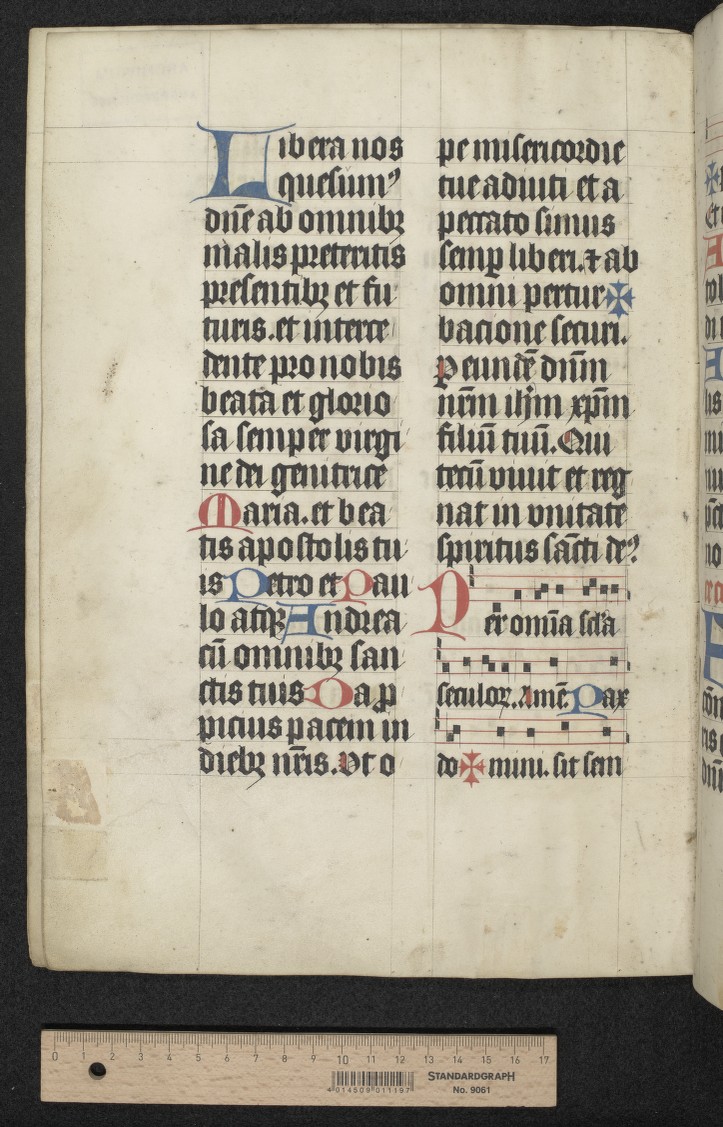 Libera nos
quesumꝰ
dn̄e ab omnibꝫ
malis preteritis
presentibꝫ et fu
turis. et interce
dente pro nobis
beata et glorio
sa semper virgi
ne dei genitrice
Maria. et bea
tis apostolis tu
is Petro et Pau
lo atqꝫ Andrea
cū omnibꝫ san
ctis tuis Da ꝓ
picius pacem in
diebꝫ nr̄is. Vt o
pe misericordie
tue adiuti et a
peccato simus
semꝑ liberi. ⁊ ab
omni pertur✠
bacione securi.
P eundē dn̄m
nr̄m ihm̄ xp̄m
filiū tuū. Qui
tecū viuit et reg
nat in vnitate
spiritus sācti deꝰ
Per om̄ia sc̄la
seculoꝝ. Amē. Pax
do✠mini. sit sem
0 1 2 3 4 5 6 7 8 9 10 11 12 13 14 15 16 17
STANDARDGRAPH
4 014509 011197
No. 9061